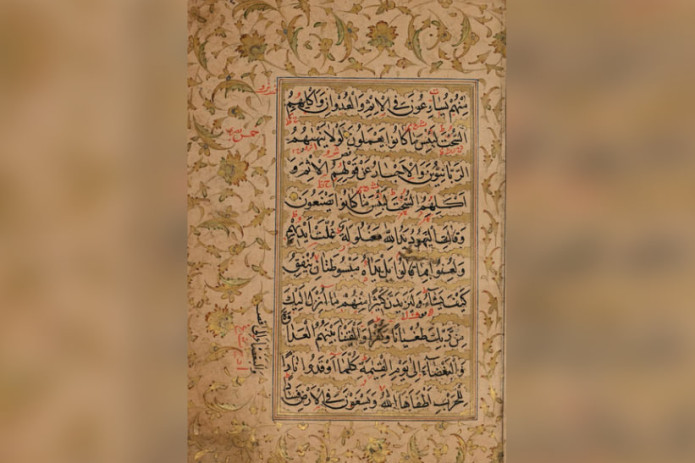 مِنْهُمْ يُسَارِعُونَ فِي الْاِثْمِ وَالْعُدْوَانِ وَاَكْلِهِمُ
السُّحْتَ لَبِئْسَ مَا كَانُوا يَعْمَلُونَ لَوْلَا يَنْهٰيهُمُ
الرَّبَّانِيُّونَ وَالْاَحْبَارُ عَنْ قَوْلِهِمُ الْاِثْمَ وَ
اَكْلِهِمُ السُّحْتَ لَبِئْسَ مَا كَانُوا يَصْنَعُونَ
وَقَالَتِ الْيَهُودُ يَدُ اللهِ مَغْلُولَةٌ غُلَّتْ اَيْدِيهِمْ
وَلُعِنُوا بِمَا قَالُوا بَلْ يَدَاهُ مَبْسُوطَتَانِ يُنْفِقُ
كَيْفَ يَشَاءُ وَلَيَزِيدَنَّ كَثِيرًا مِنْهُمْ مَا اُنْزِلَ اِلَيْكَ
مِنْ رَبِّكَ طُغْيَانًا وَكُفْرًا وَاَلْقَيْنَا بَيْنَهُمُ الْعَدَا
وَالْبَغْضَاءَ اِلٰى يَوْمِ الْقِيٰمَةِ كُلَّمَا اَوْقَدُوا نَارًا
لِلْحَرْبِ اَطْفَاَهَا اللهُ وَيَسْعَوْنَ فِي الْاَرْضِ